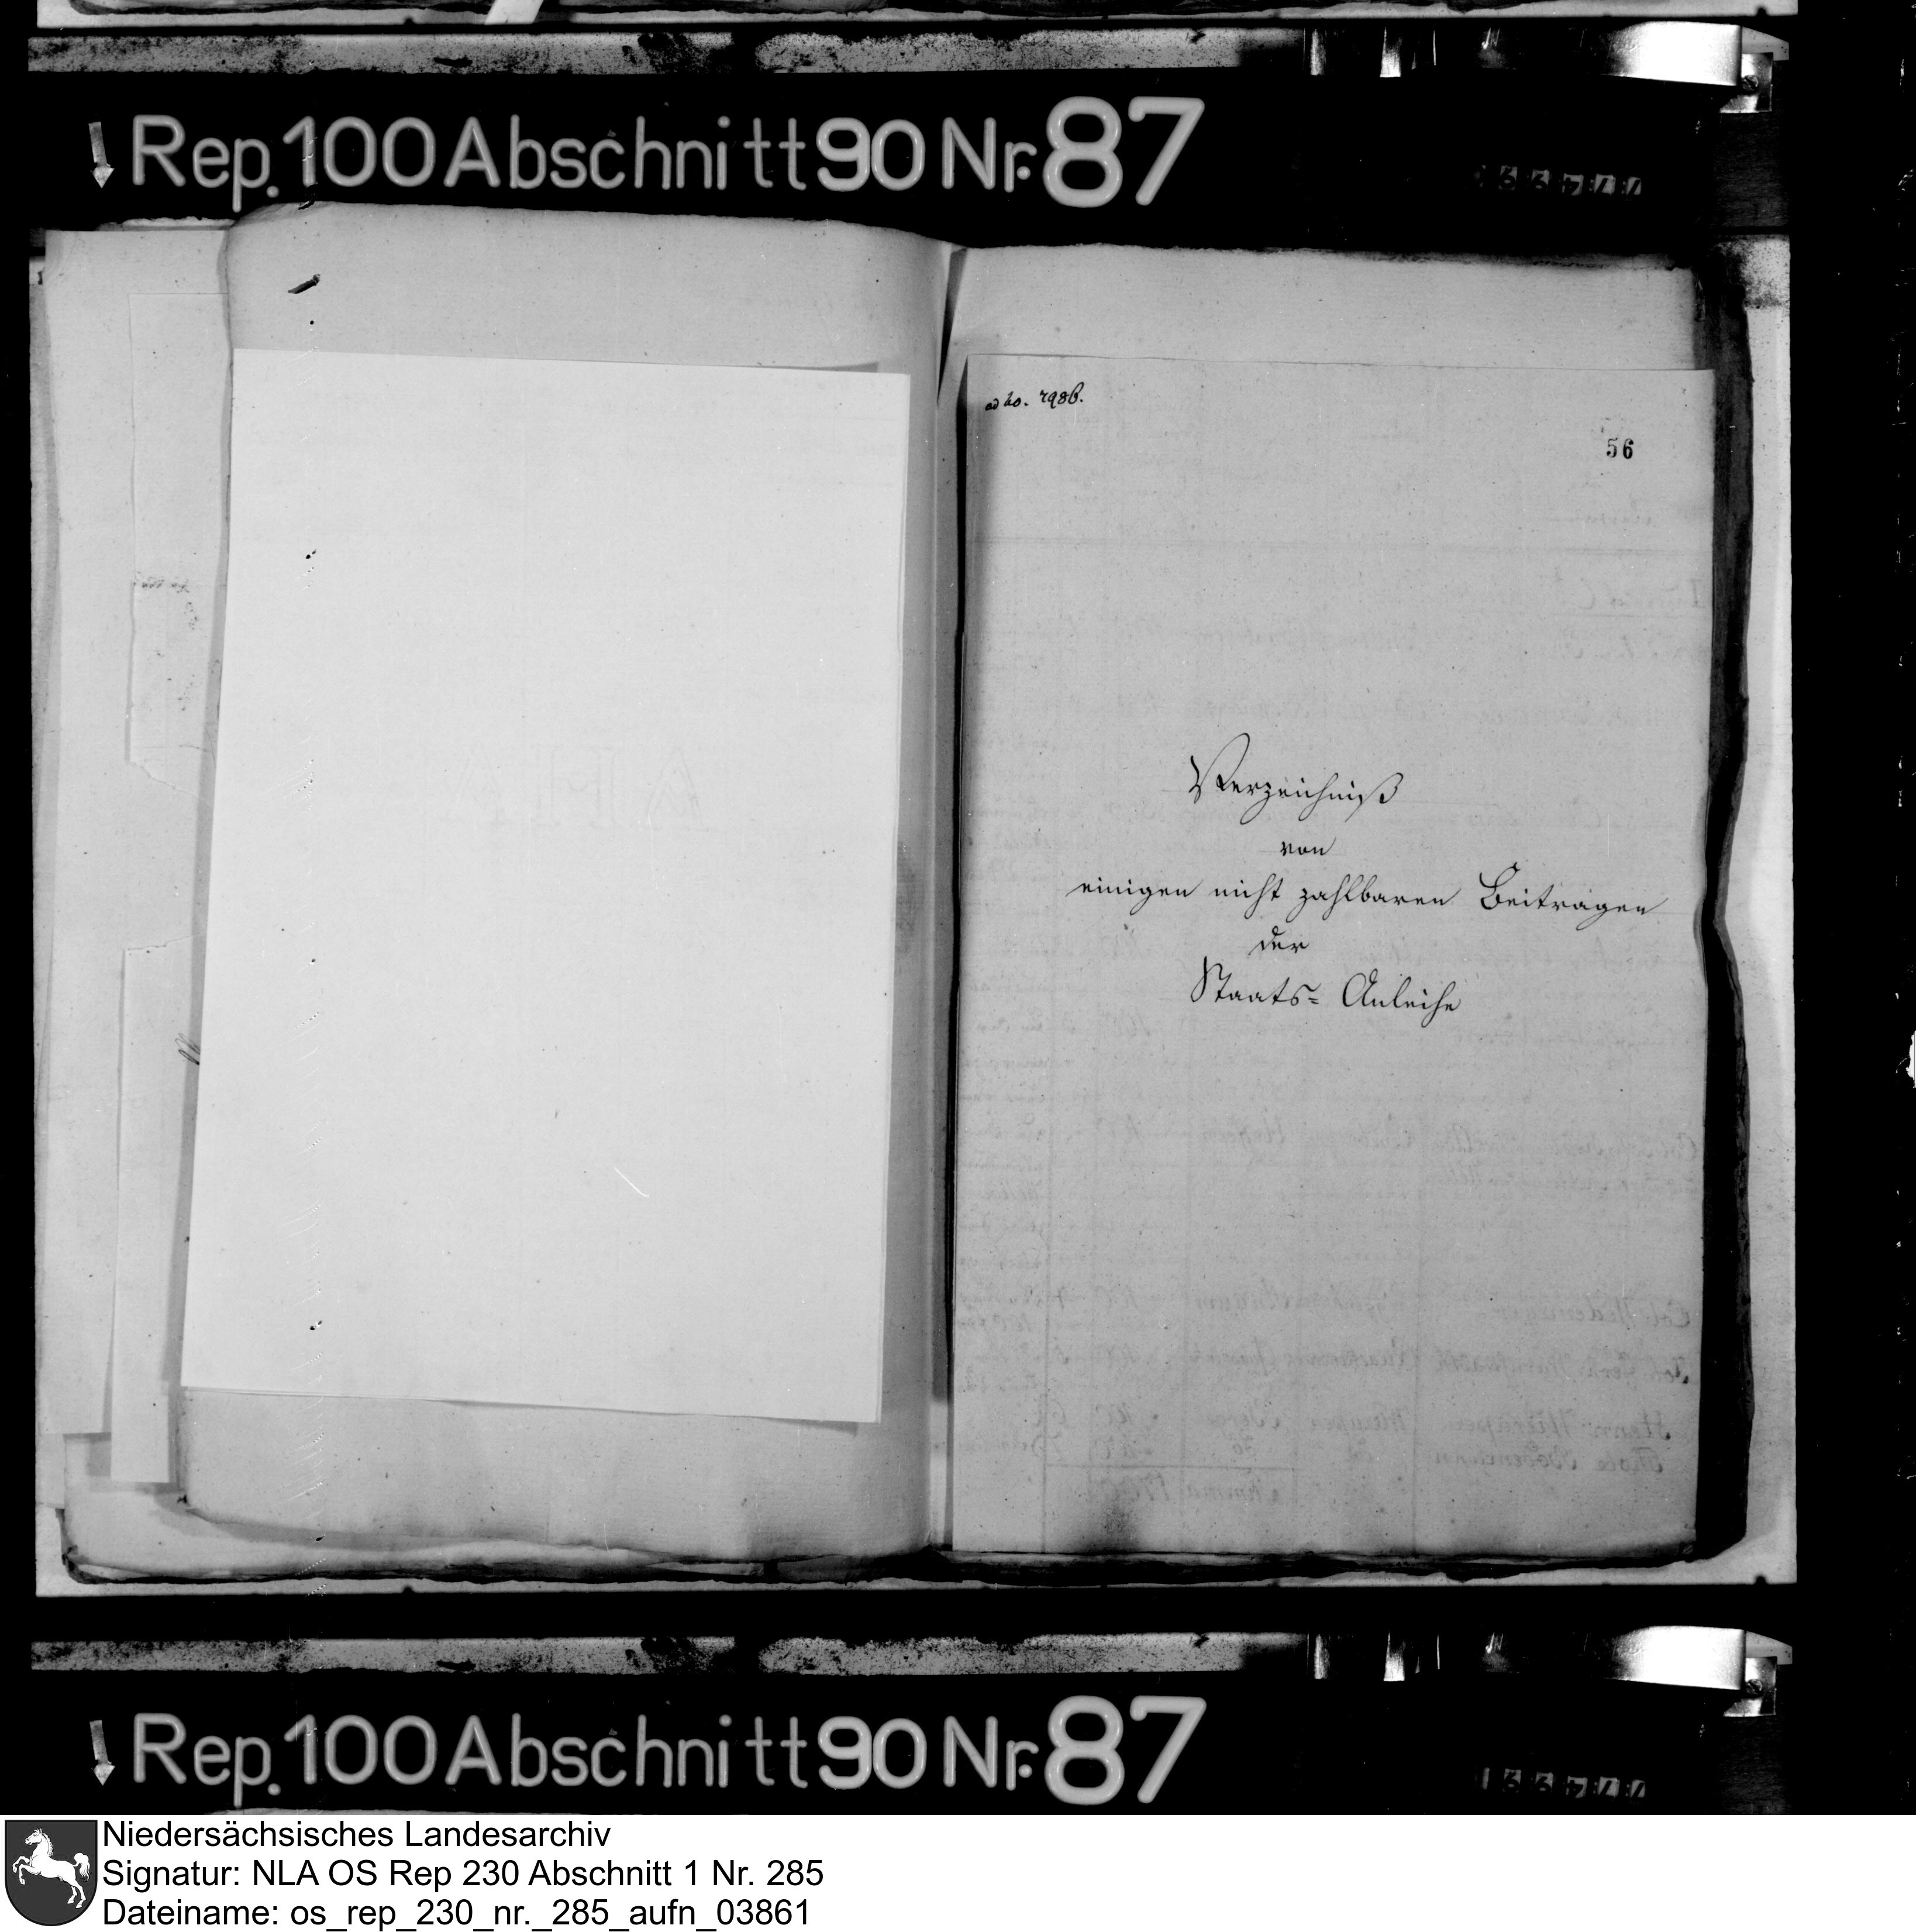 Rep. 100 Abschnitt 90 Nr. 87
ad no. 2986.
56
Verzeichniß
von
einigen nicht zahlbaren Beiträgen
der
Staats= Anleihe
Rep. 100 Abschnitt 90 Nr. 87
Niedersächsisches Landesarchiv
Signatur: NLA OS Rep 230 Abschnitt 1 Nr. 285
Dateiname: os_rep_230_nr._285_aufn_03861